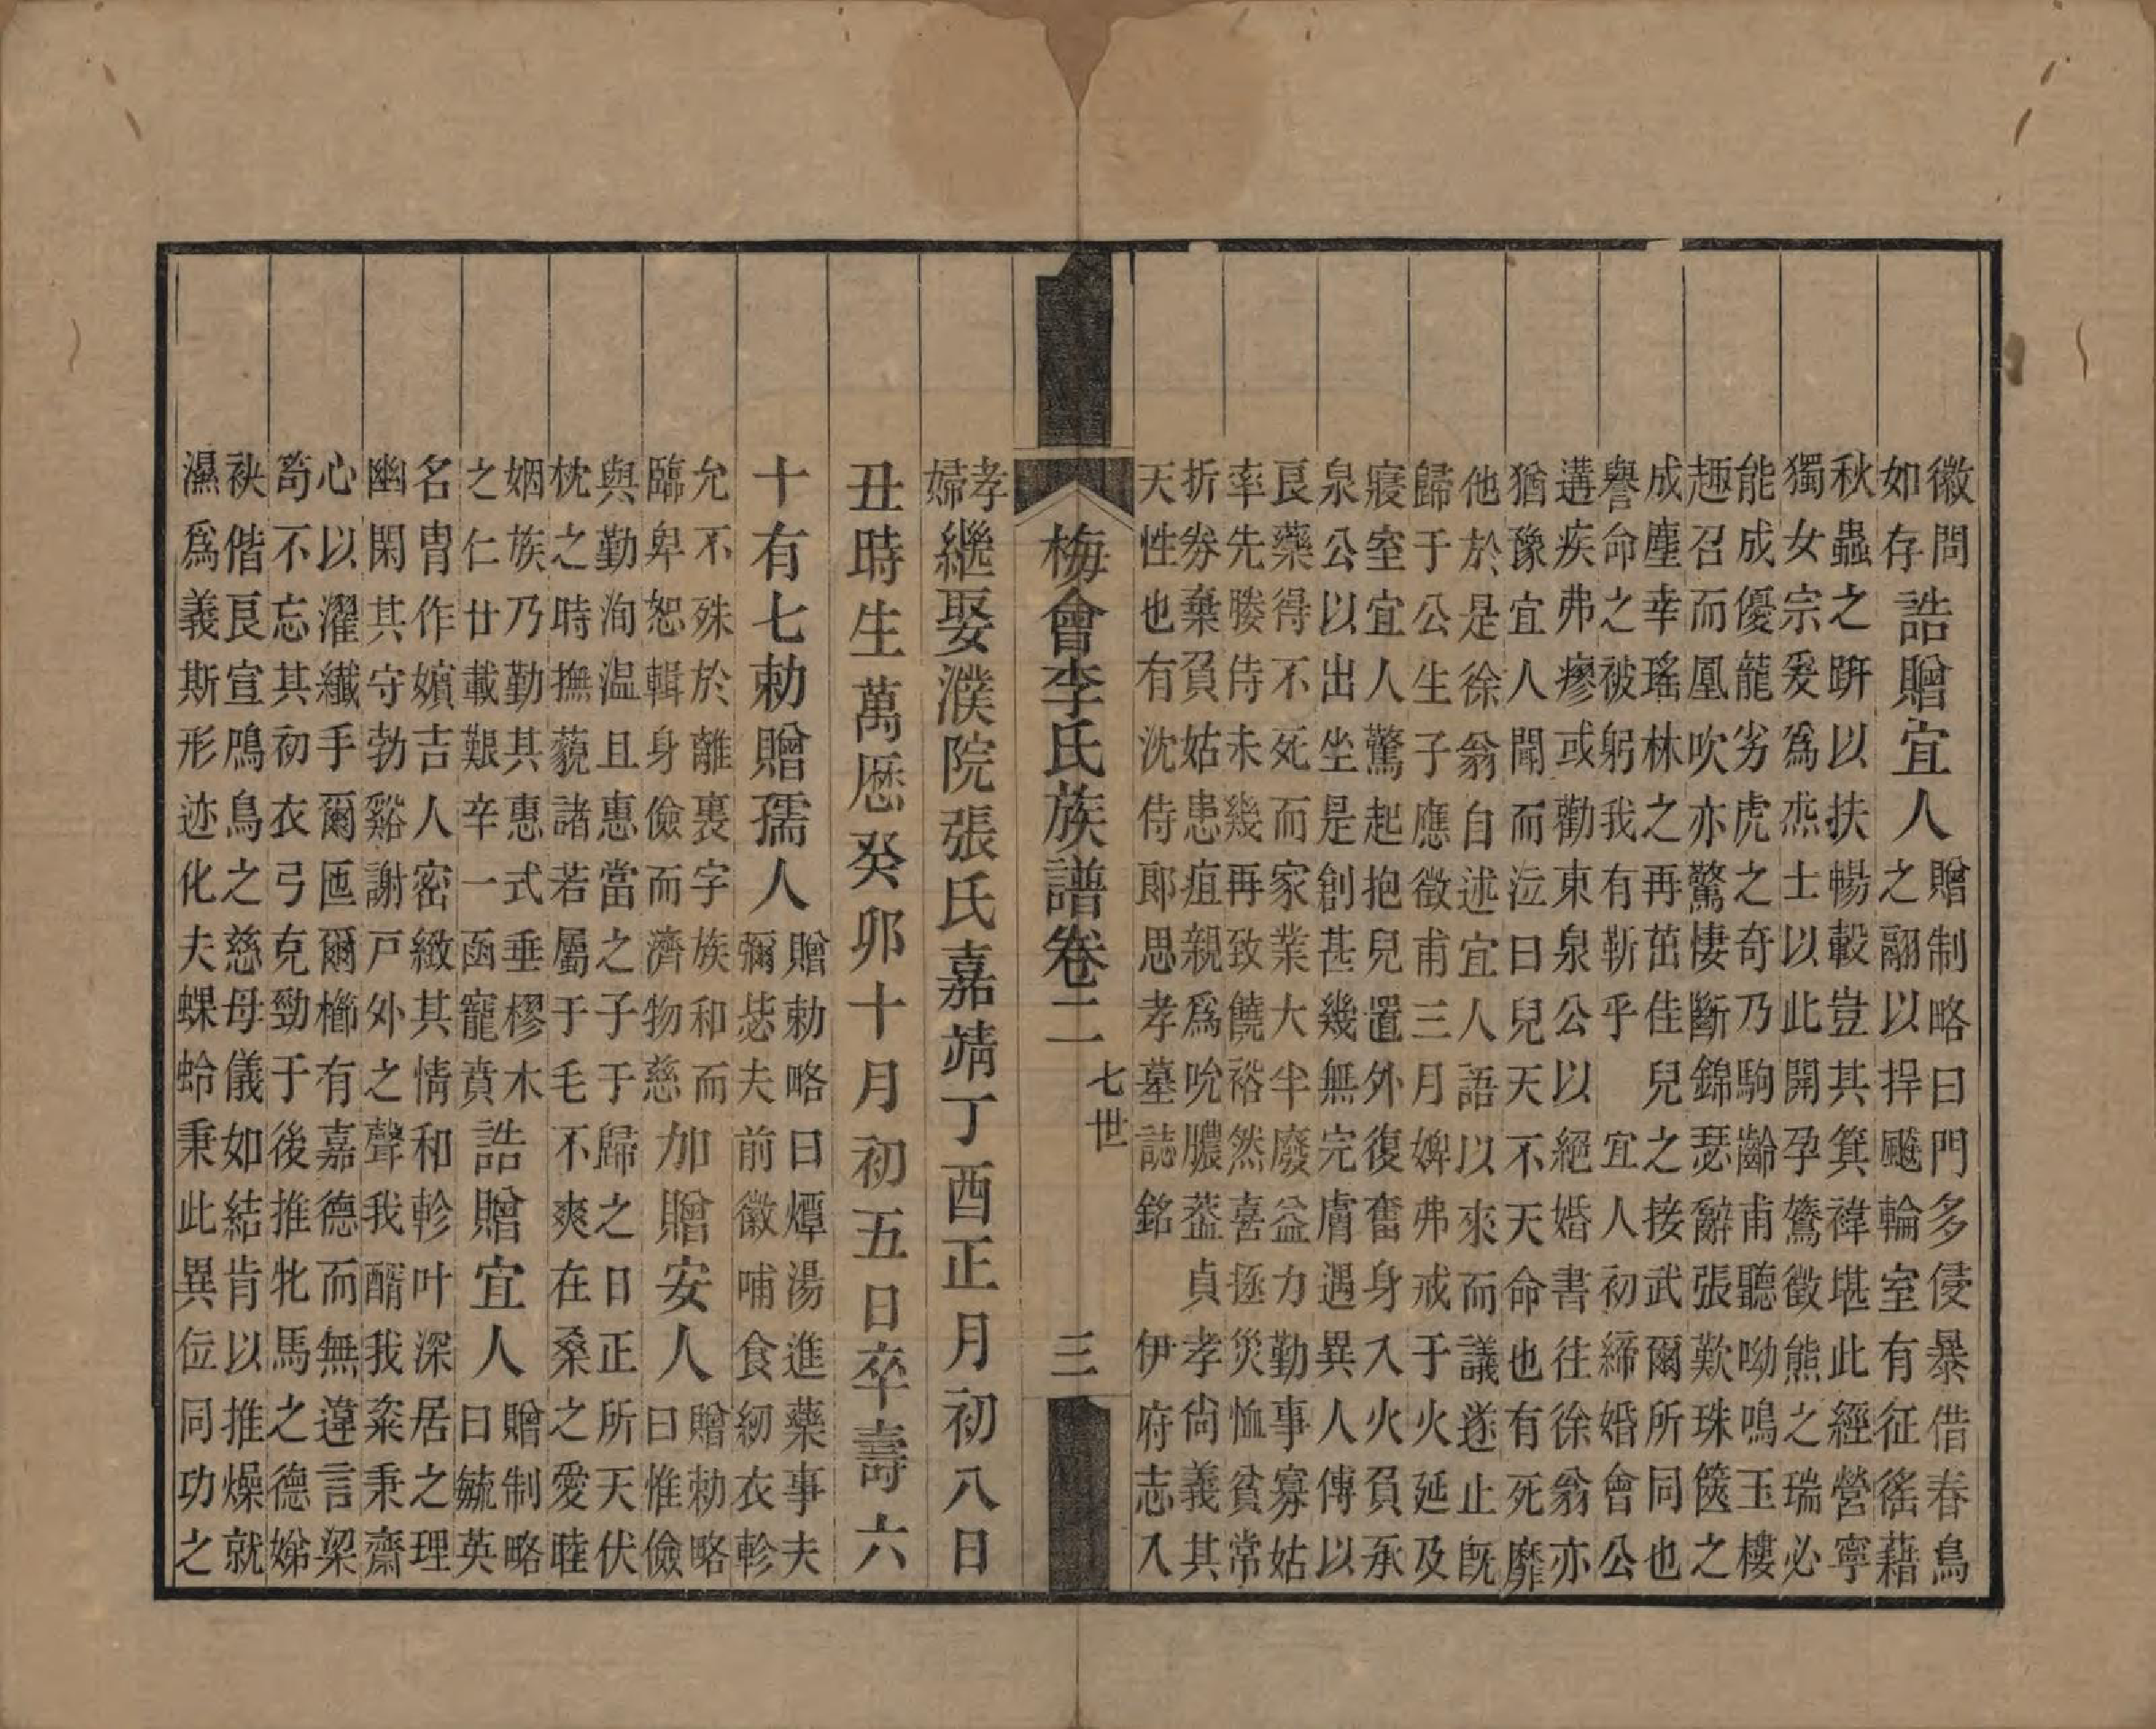 徽問
如存
誥贈宜人
贈制略曰門多侵暴借春鳥
之翮以捍飈輪室有征徭藉
秋蟲之跰以扶暢轂豈其箕褘堪此經營寧
獨女宗爰爲烝士以此開孕鶱徵熊之瑞必
能成優龍劣虎之奇乃駒齡甫聽呦鳴玉樓
趣召而凰吹亦驚悽斷錦瑟辭張歎珠篋之
成塵幸瑤林之再茁佳兒之接武爾所同也
譽命之被躬我有靳乎　宜人初締婚會公
遘疾弗瘳或勸東泉公以絕婚書往徐翁亦
猶豫宜人聞而泣曰兒天不天命也有死靡
他於是徐翁自述宜人語以來而議遂止旣
歸于公生子應徵甫三月婢弗戒于火延及
寢室宜人驚起抱兒置外復奮身入火負承
泉公以出坐是創甚幾無完膚遇異人傳以
良藥得不死而家業大半廢益力勤事寡姑
率先媵侍未幾再致饒裕然喜拯災恤貧常
折劵棄負姑患疽親爲吮膿葢貞孝尙義其
天性也有沈侍郞思孝墓誌銘　伊府志入
梅會李氏族譜卷二　七世　三
孝
婦
繼娶濮院張氏嘉靖丁酉正月初八日
丑時生萬厯癸卯十月初五日卒壽六
十有七勅贈孺人
贈勅略曰燂湯進藥事夫
彌毖夫前徽哺食紉衣軫
允不殊於離裏字族和而
臨卑恕輯身儉而濟物慈
加贈安人
贈勅略
曰惟儉
與勤洵温且惠當之子于歸之日正所天伏
枕之時撫藐諸若屬于毛不爽在桑之愛睦
姻族乃勤其惠式垂樛木
之仁廿載艱辛一函寵賁
誥贈宜人
贈制略
曰毓英
名胄作嬪吉人密緻其情和軫叶深居之理
幽閑其守勃谿謝戸外之聲我醑我粢秉齋
心以濯纖手爾匜爾櫛有嘉德而無違言梁
笱不忘其初衣弓克勁于後推牝馬之德娣
袂偕良宣鳲鳥之慈母儀如結肯以推燥就
濕爲義斯形迹化夫蜾蛉秉此異位同功之